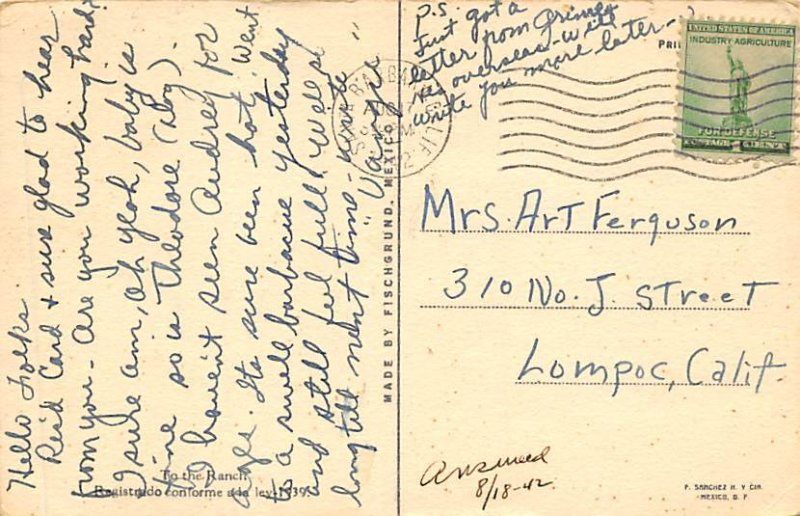 Hello Folks.
Rec'd Card & sure glad to hear
from you - Are you working hard?
I sure am, oh yeah, baby is
fine so is Theodore (Dog).
I haven't seen Audrey for
ages. Its sure been hot. Went
to a swell barbacue yesterday
and still feel full. Well so
long till next time - write
"Vangie"
To the Ranch
Registrado conforme a la ley-1939.
MADE BY FISCHGRUND, MEXICO
P.S.
Just got a
letter from
hes overseas - will
write you more later -
UNITED STATES OF AMERICA
INDUSTRY AGRICULTURE
FOR DEFENSE
POSTAGE 1 CENT
Mrs. Art Ferguson
310 No. J. Street
Lompoc, Calif
Answered
8/18-42
F. SANCHEZ H. Y CIA.
MEXICO, D. F